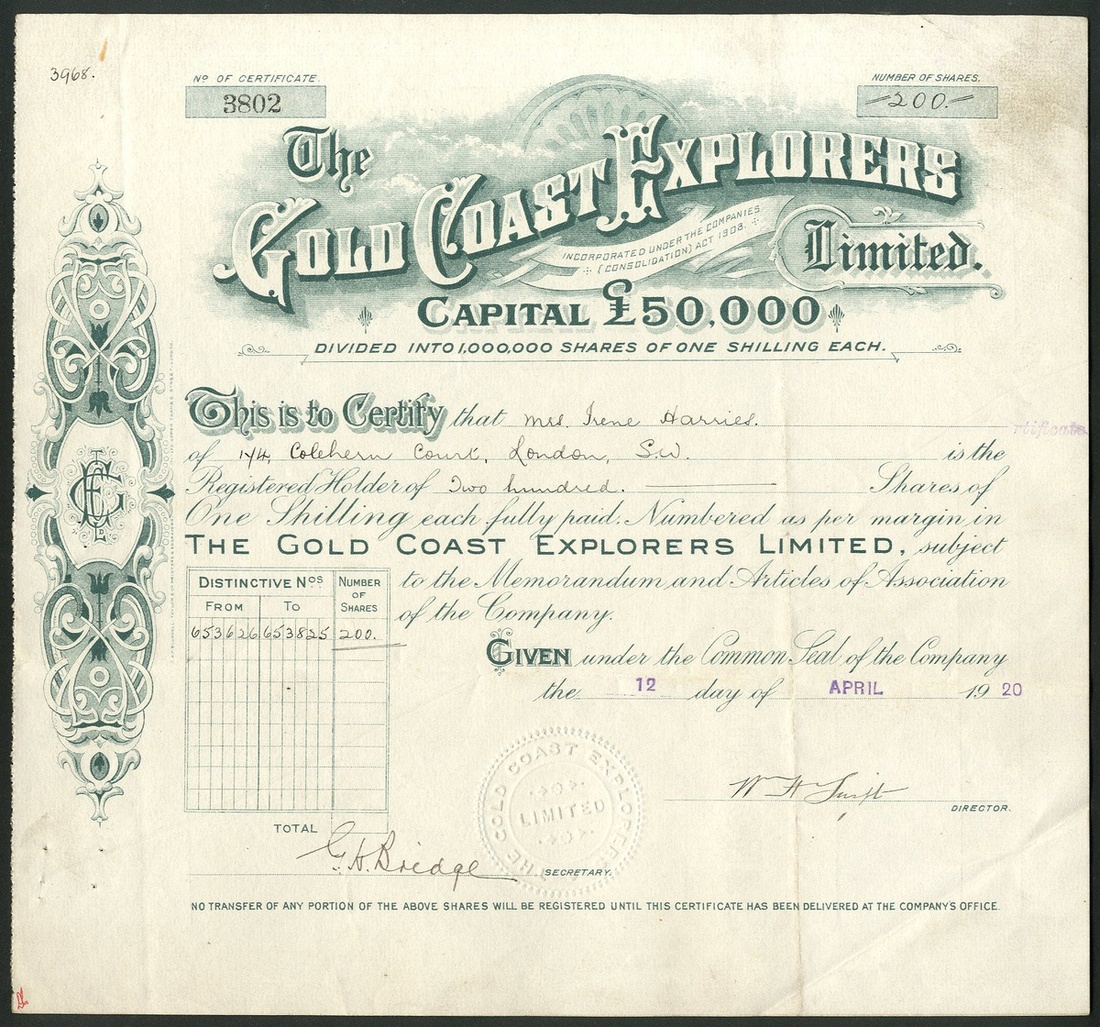 3968.
No OF CERTIFICATE.
3802
NUMBER OF SHARES.
200.
The
GOLD COAST EXPLORERS
INCORPORATED UNDER THE COMPANIES
(CONSOLIDATION) ACT 1908.
Limited.
CAPITAL £50,000
DIVIDED INTO 1,000,000 SHARES OF ONE SHILLING EACH.
This is to Certify that Mrs. Irene Harries.
of 174, Colehern Court, London, S.W. is the
Registered Holder of Two hundred. Shares of
One Shilling each fully paid. Numbered as per margin in
THE GOLD COAST EXPLORERS LIMITED, subject
to the Memorandum and Articles of Association
of the Company.
DISTINCTIVE Nos NUMBER OF SHARES
FROM TO
653626 653825 200.
GIVEN under the Common Seal of the Company
the 12 day of APRIL 1920
THE GOLD COAST EXPLORERS
LIMITED
W H Swift
DIRECTOR.
TOTAL
G.H. Bridge
SECRETARY.
NO TRANSFER OF ANY PORTION OF THE ABOVE SHARES WILL BE REGISTERED UNTIL THIS CERTIFICATE HAS BEEN DELIVERED AT THE COMPANY'S OFFICE.